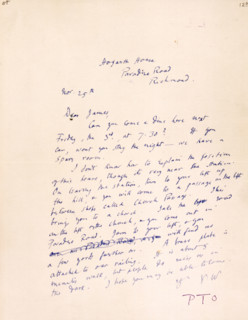 Hogarth House
Paradise Road
Richmond.
Nov. 25th
Dear James,
Can you come & dine here next
Friday, the 3rd, at 7.30? If you
can, won't you stay the night — we have a
spare room.
I don't know how to explain the position
of this house, though it's very near the station.
On leaving the station, turn to your left up
the hill, & you will come to a passage on the left
between shops called Church Passage. This
brings you to a church. Take the road
on the left side church, & you come out in
Paradise Road. Turn to your left, & you
will find us
a few yards further on. A brass plate is
attached to our railing. It is about 5
minutes walk, but people
this year. I hope you may be able to come.
yr V.W.
P T O